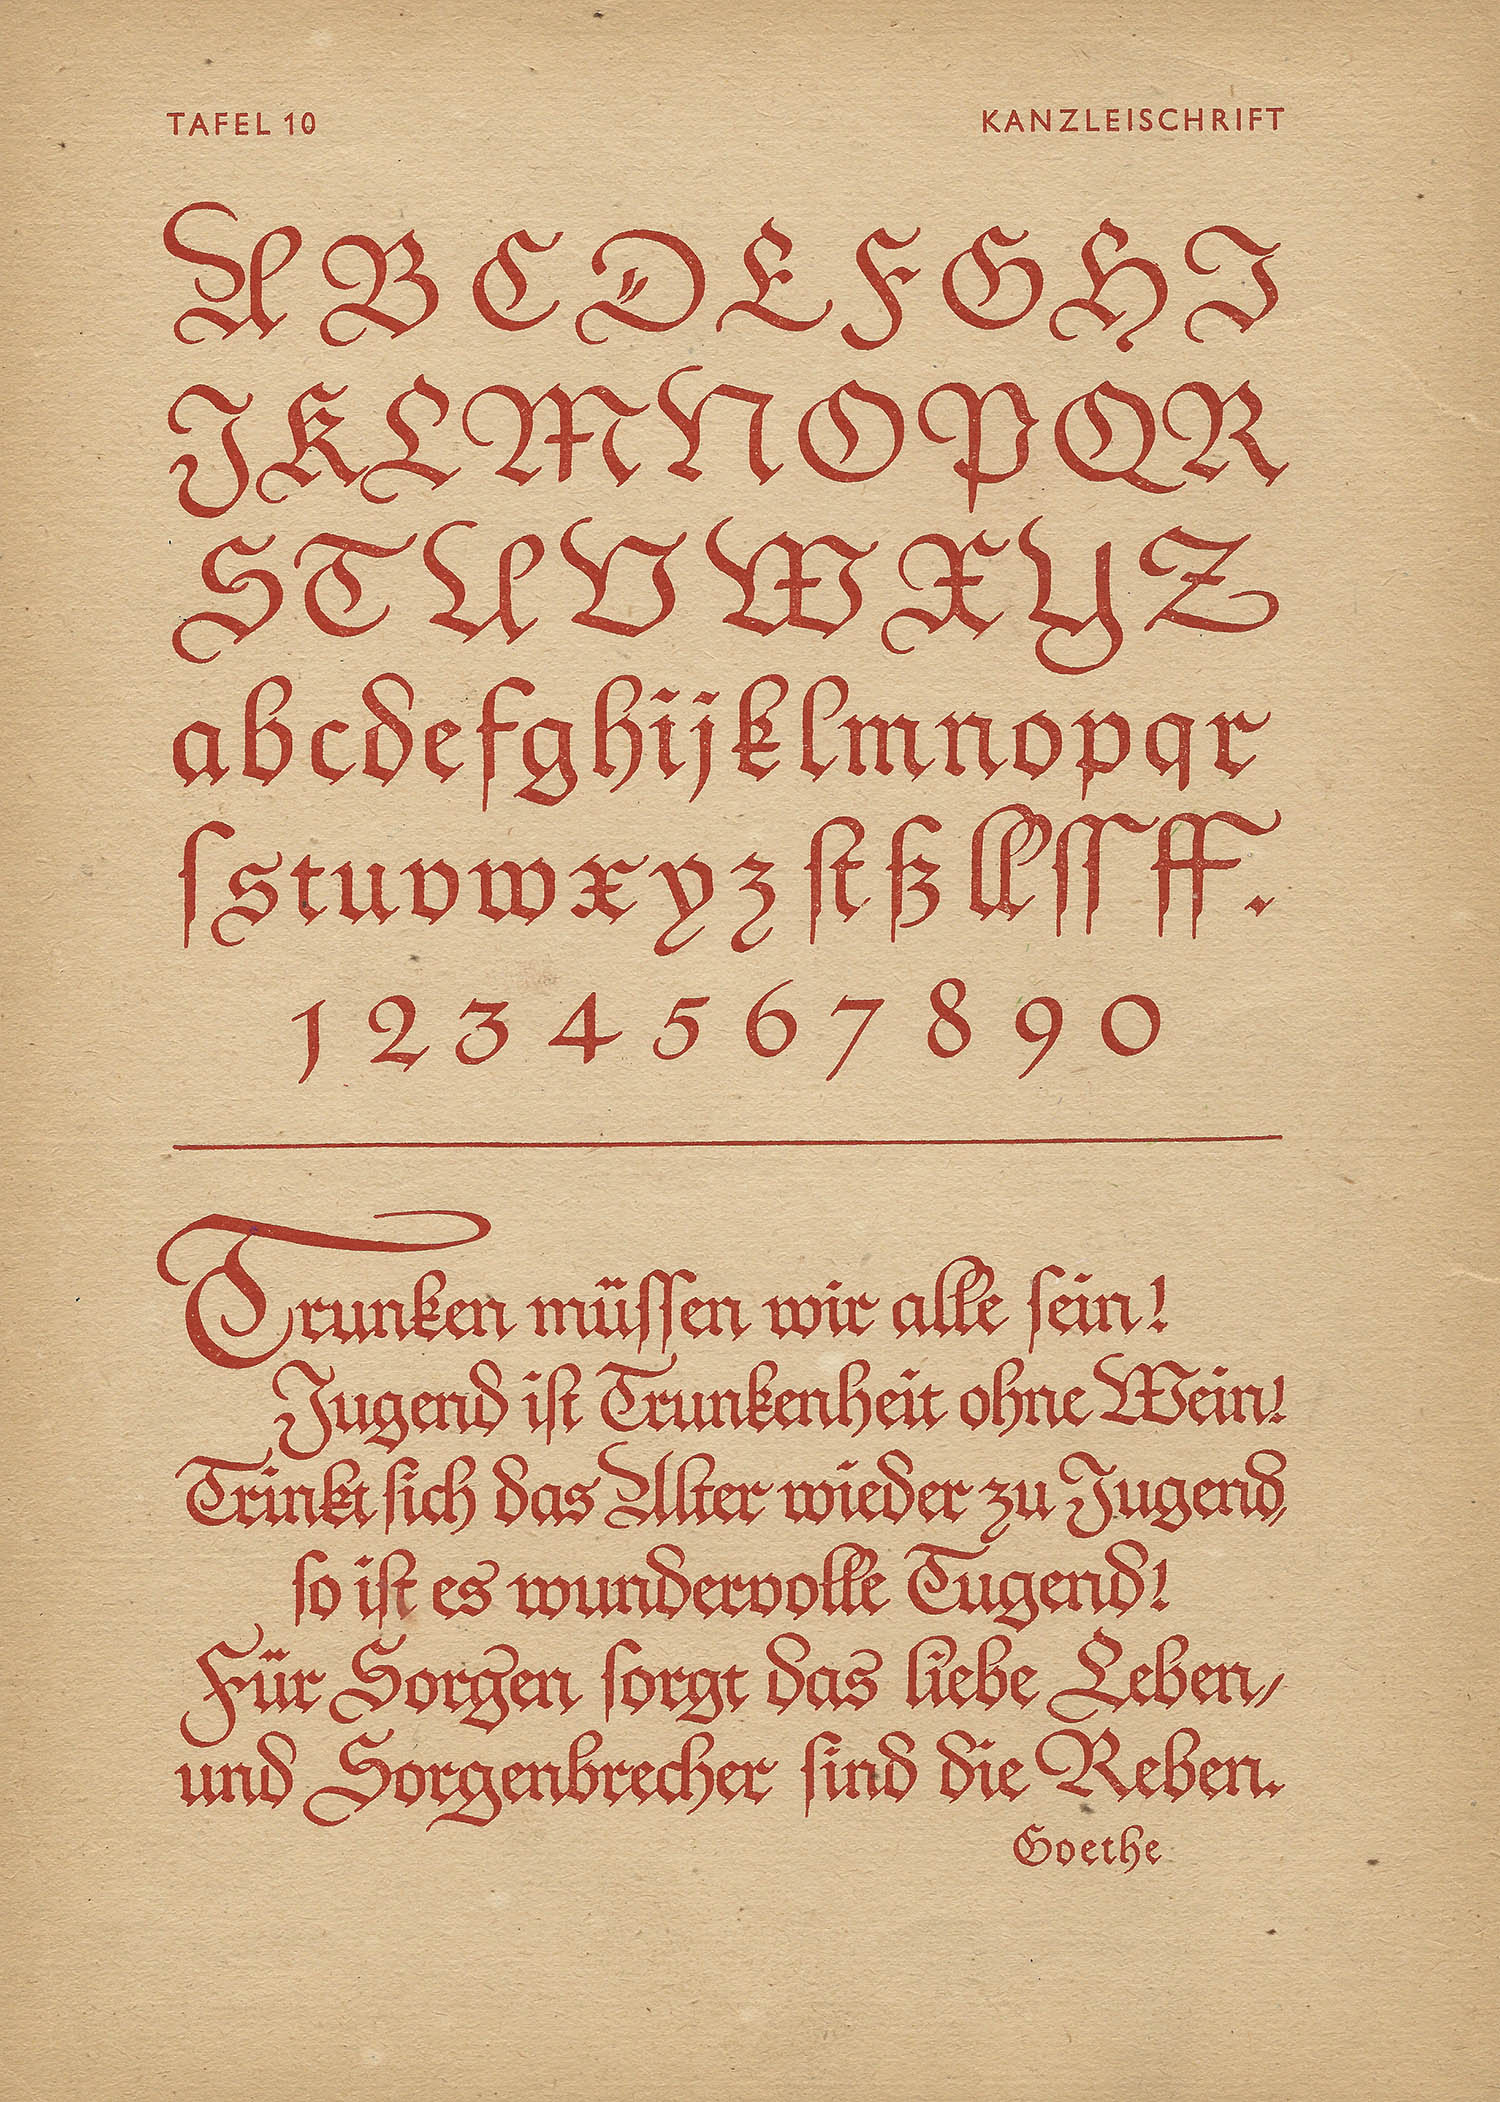 TAFEL 10
KANZLEISCHRIFT
A B C D E F G H I
J K L M N O P Q R
S T U V W X Y Z
a b c d e f g h i j k l m n o p q r
ſ s t u v w x y z ſt ß ll ſſ ff .
1 2 3 4 5 6 7 8 9 0
Trunken müſſen wir alle ſein!
Jugend iſt Trunkenheit ohne Wein!
Trinkt ſich das Alter wieder zu Jugend,
ſo iſt es wundervolle Tugend!
Für Sorgen ſorgt das liebe Leben,
und Sorgenbrecher ſind die Reben.
Goethe